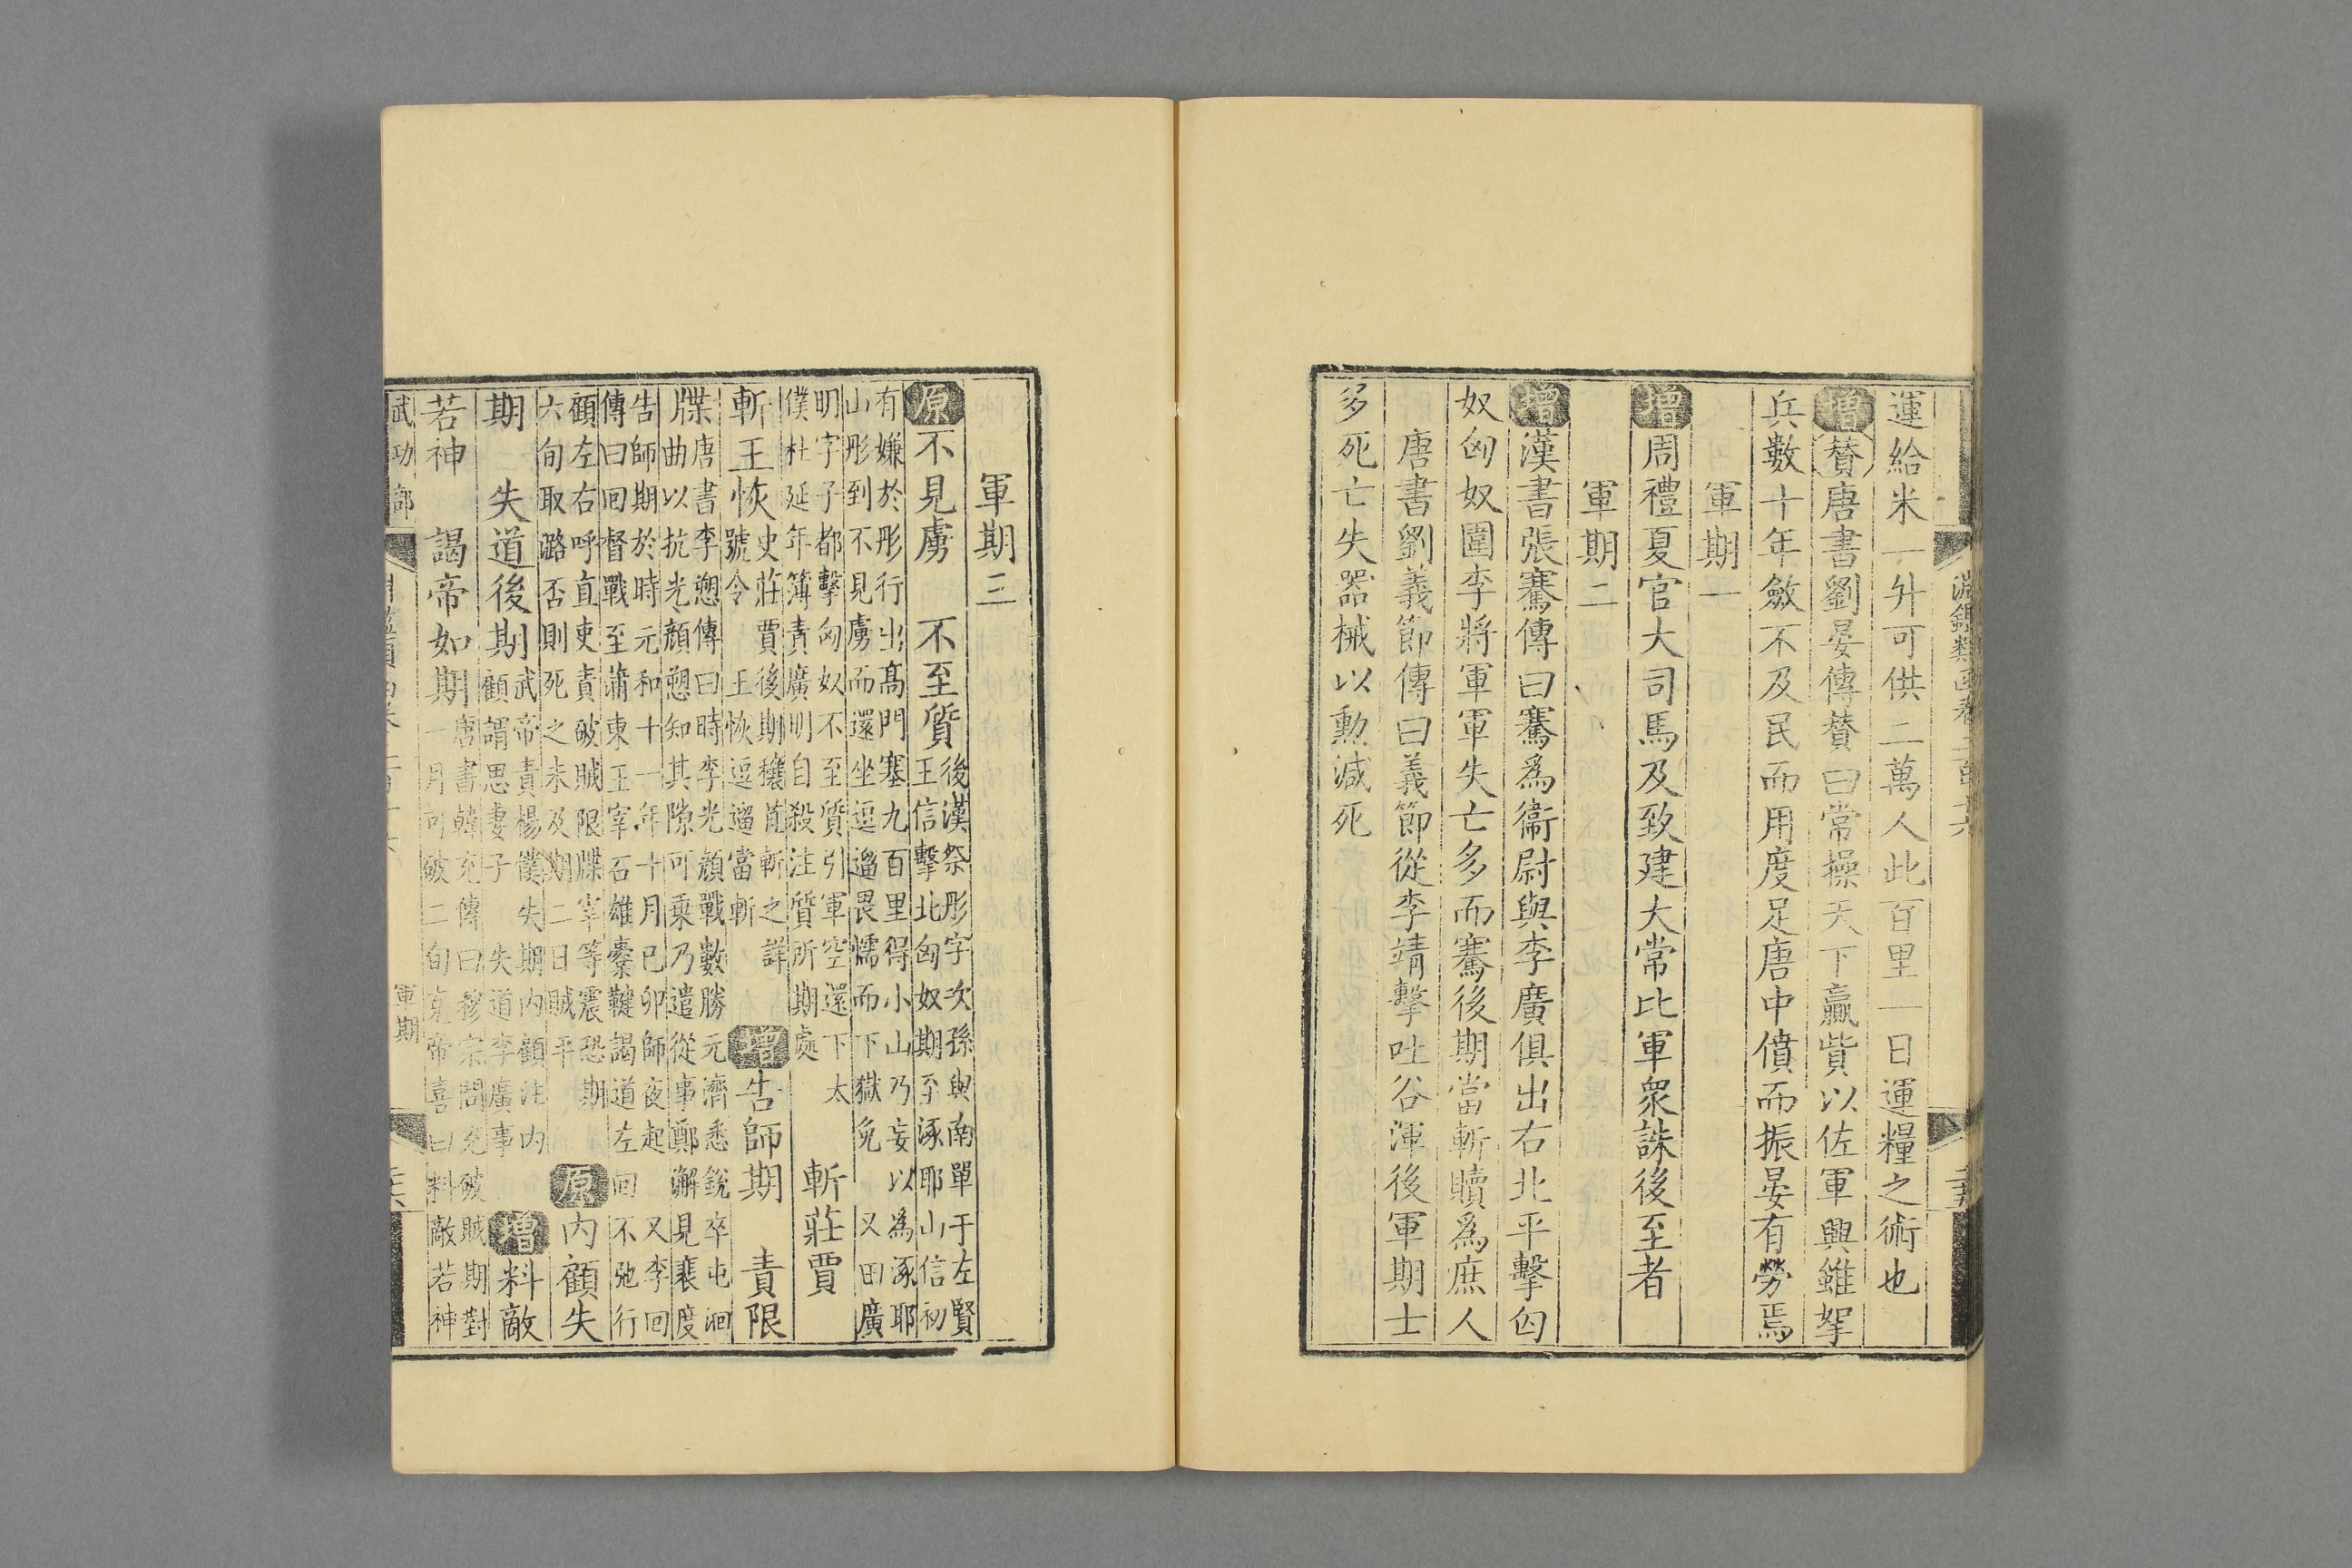 淵鑑類函卷二百十六
運給米一升可供二萬人此百里一日運糧之術也
增贊唐書劉晏傳贊曰常操天下贏貲以佐軍興雖挐
兵數十年斂不及民而用度足唐中僨而振晏有勞焉
軍期一
增周禮夏官大司馬及致建大常比軍衆誅後至者
軍期二
增漢書張騫傳曰騫爲衞尉與李廣俱出右北平擊匈
奴匈奴圍李將軍軍失亡多而騫後期當斬贖爲庶人
唐書劉義節傳曰義節從李靖擊吐谷渾後軍期士
多死亡失器械以勲減死
軍期三
原不見虜 不至質後漢祭肜字次孫與南單于左賢
王信擊北匈奴期至涿耶山信初
有嫌於肜行出髙門塞九百里得小山乃妄以爲涿耶
山肜到不見虜而還坐逗遛畏懦而下獄免 又田廣
明字子都擊匈奴不至質引軍空還下太
僕杜延年簿責廣明自殺注質所期處
斬莊賈
斬王恢史莊賈後期穰苴斬之詳
號令 王恢逗遛當斬
增告師期 責限
牒唐書李愬傳曰時李光顔戰數勝元濟悉銳卒屯洄
曲以抗光顔愬知其隙可乗乃遣從事鄭澥見裴度
告師期於時元和十一年十月已卯師夜起 又李回
傳曰回督戰至蒲東王宰石雄櫜鞬謁道左回不弛行
顧左右呼直吏責破賊限牒宰等震恐期
六旬取潞否則死之未及期二日賊平
原内顧失
期 失道後期武帝責楊僕失期内顧注内
顧謂思妻子 失道李廣事
增料敵
若神 謁帝如期唐書韓充傳曰穆宗問充破賊期對
一月可破二旬克帝喜曰料敵若神
武功部
軍期